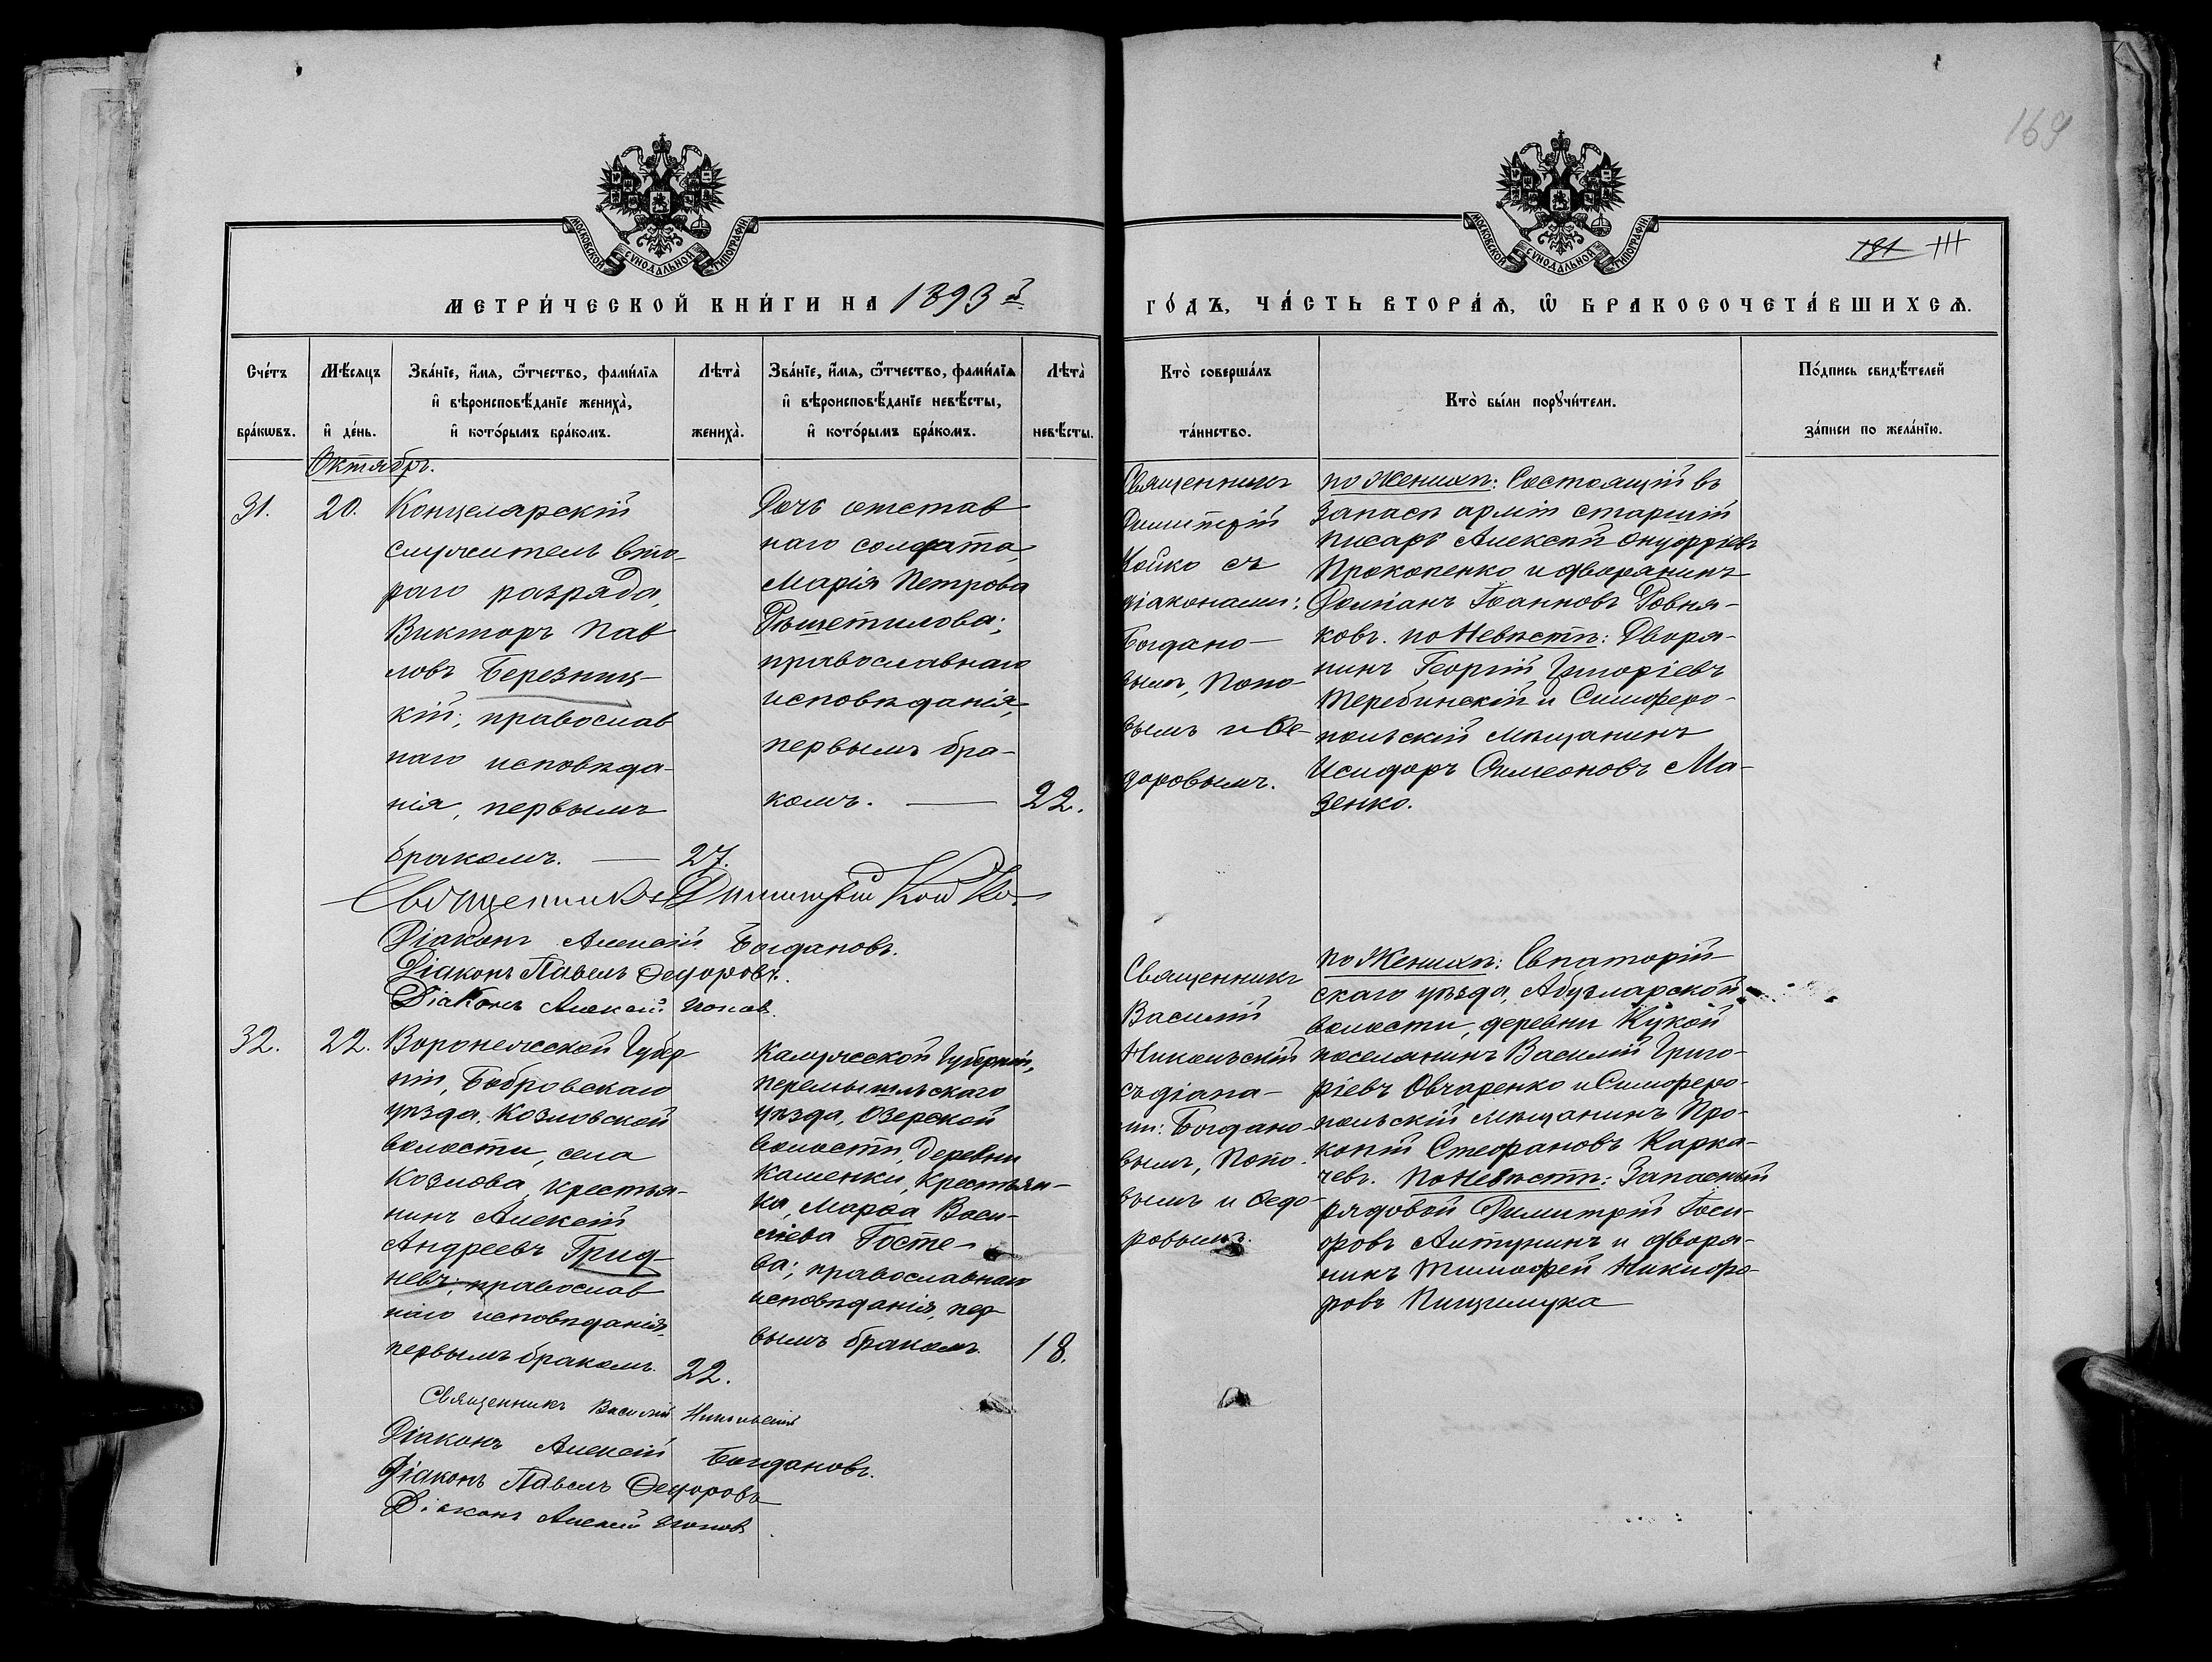 169
МОСКОВСКОЙ СѴНОДАЛЬНОЙ ТИПОГРАФІИ
МОСКОВСКОЙ СѴНОДАЛЬНОЙ ТИПОГРАФІИ
МЕТРИ́ЧЕСКОЙ КНИ́ГИ НА 1893 й
ГО́ДЪ, ЧА́СТЬ ВТОРА́Ѧ, Ѡ҆ БРАКОСОЧЕТА́ВШИХСѦ.
Сче́тъ бра́кѡвъ.
Мѣ́сѧцъ и҆ де́нь.
Зва́нїе, и҆́мѧ, ѻ҆́тчество, фами́лїѧ и҆ вѣроисповѣ́данїе жениха̀, и҆ кото́рымъ бра́комъ.
Лѣта̀ жениха̀.
Зва́нїе, и҆́мѧ, ѻ҆́тчество, фами́лїѧ и҆ вѣроисповѣ́данїе невѣ́сты, и҆ кото́рымъ бра́комъ.
Лѣта̀ невѣ́сты.
Кто̀ соверша́лъ та́инство.
Кто̀ бы́ли порꙋчи́тели.
По́дпись свидѣ́телей за́писи по жела́нїю.
Октябрь.
31.
20.
Концелярскій
служитель вто-
раго разряда,
Викторъ Пав
ловъ Березниц-
кій; православ
наго исповѣда-
нія, первымъ
бракомъ. — 27.
Дочь отстав
наго солдата,
Марія Петрова
Рѣшетилова;
православнаго
исповѣданія,
первымъ бра-
комъ. — 22.
Священникъ
Димитрій
Койко съ
діаконами:
Богдано-
вымъ, Попо-
вымъ и Ѳе-
доровымъ.
по Женихѣ: Состоящій въ
запасѣ арміи старшій
писарь Алексѣй Онуфріевъ
Прокопенко и дворянинъ
Доміанъ Іоанновъ Ровня-
ковъ. по Невѣстѣ: Дворя-
нинъ Георгій Григоріевъ
Теребинскій и Симферо-
польскій мѣщанинъ
Исидоръ Симеоновъ Ма-
зенко.
Священникъ Димитрій Койко
Діаконъ Алексій Богдановъ.
Діаконъ Павелъ Ѳедоровъ.
Діаконъ Алексѣй Попов.
32.
22.
Воронежской Губер
ніи, Бобровскаго
уѣзда, Козловской
волости, села
Козлова, крестья-
нинъ Алексій
Андреевъ Грид
невъ; православ
наго исповѣданія,
первымъ бракомъ. 22.
Калужской Губерніи,
перемышльскаго
уѣзда, Озерской
волости, деревни
Каменки, крестьян-
ка, Марѳа Васи-
ліева Госте-
ва; православнаго
исповѣданія, пер
вымъ бракомъ. 18.
Священникъ
Василій
Никольскій
съ діана-
ми: Богдано-
вымъ, Попо-
вымъ и Ѳедо-
ровымъ.
по Женихѣ: Евпаторій
скаго уѣзда, Абузларской
волости, деревни Кукой
поселянинъ Василій Григо-
ріевъ Овчаренко и Симферо-
польскій мѣщанинъ Про-
копій Стефановъ Карка-
чевъ. По Невѣстѣ: Запасный
рядовой Димитрій Іоси-
фовъ Антунинъ и дворя-
нинъ Тимофей Никифо-
ровъ Пищимуха
Священникъ Василій Никольскій
Діаконъ Алексій Богдановъ.
Діаконъ Павелъ Ѳедоровъ
Діаконъ Алексѣй Попов.